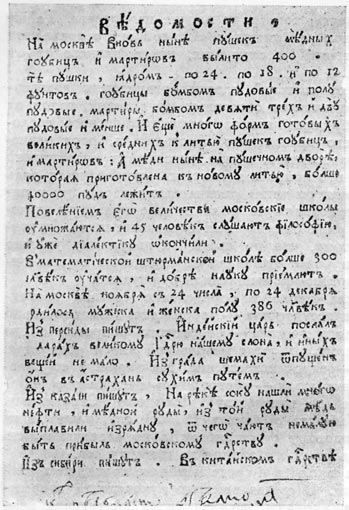 ВѢДОМОСТИ
На москвѣ вновь нынѣ пушекъ мѣдныхъ
гоубицъ и мартировъ вылито 400.
тѣ пушки, ядромъ. по 24. по 18. и по 12
фунтовъ. гоубицы бомбомъ пудовые и полу
пудовые. мартиры. бомбомъ девяти трехъ и дву
пудовые и менше. И еще много формъ готовыхъ
великихъ, и среднихъ к литью пушекъ гоубицъ,
и мартировъ: А мѣди нынѣ. на пушечномъ дворѣ,
которая приготовлена къ новому литью, болше
40000 пудъ лежитъ.
Повелѣнїемъ его величества московские школы
умножаются, и 45 человѣкъ слушаютъ философїю,
и уже дїалектику окончили.
В математической штюрманской школѣ болше 300
члвѣкъ учатся, и добрѣ науку прїемлютъ.
На москвѣ ноября съ 24 числа, по 24 декабря
родилось мужска и женска полу 386 члвѣкъ.
Из персиды пишутъ. Индѣйскїй царь послалъ
въ дарахъ великому Царю нашему слона, и иныхъ
вещей не мало. Из града шемахи ѿпущенъ
онъ въ астрахань сухимъ путемъ.
Из казани пишутъ, На рѣкѣ соку нашли много
нефти, и мѣдной руды, из той руды мѣдь
выплавили изрядну, ѿ чего чаютъ немалую
быть прибыль московскому гдрству.
Из сибири пишутъ. В китайскомъ гдрствѣ